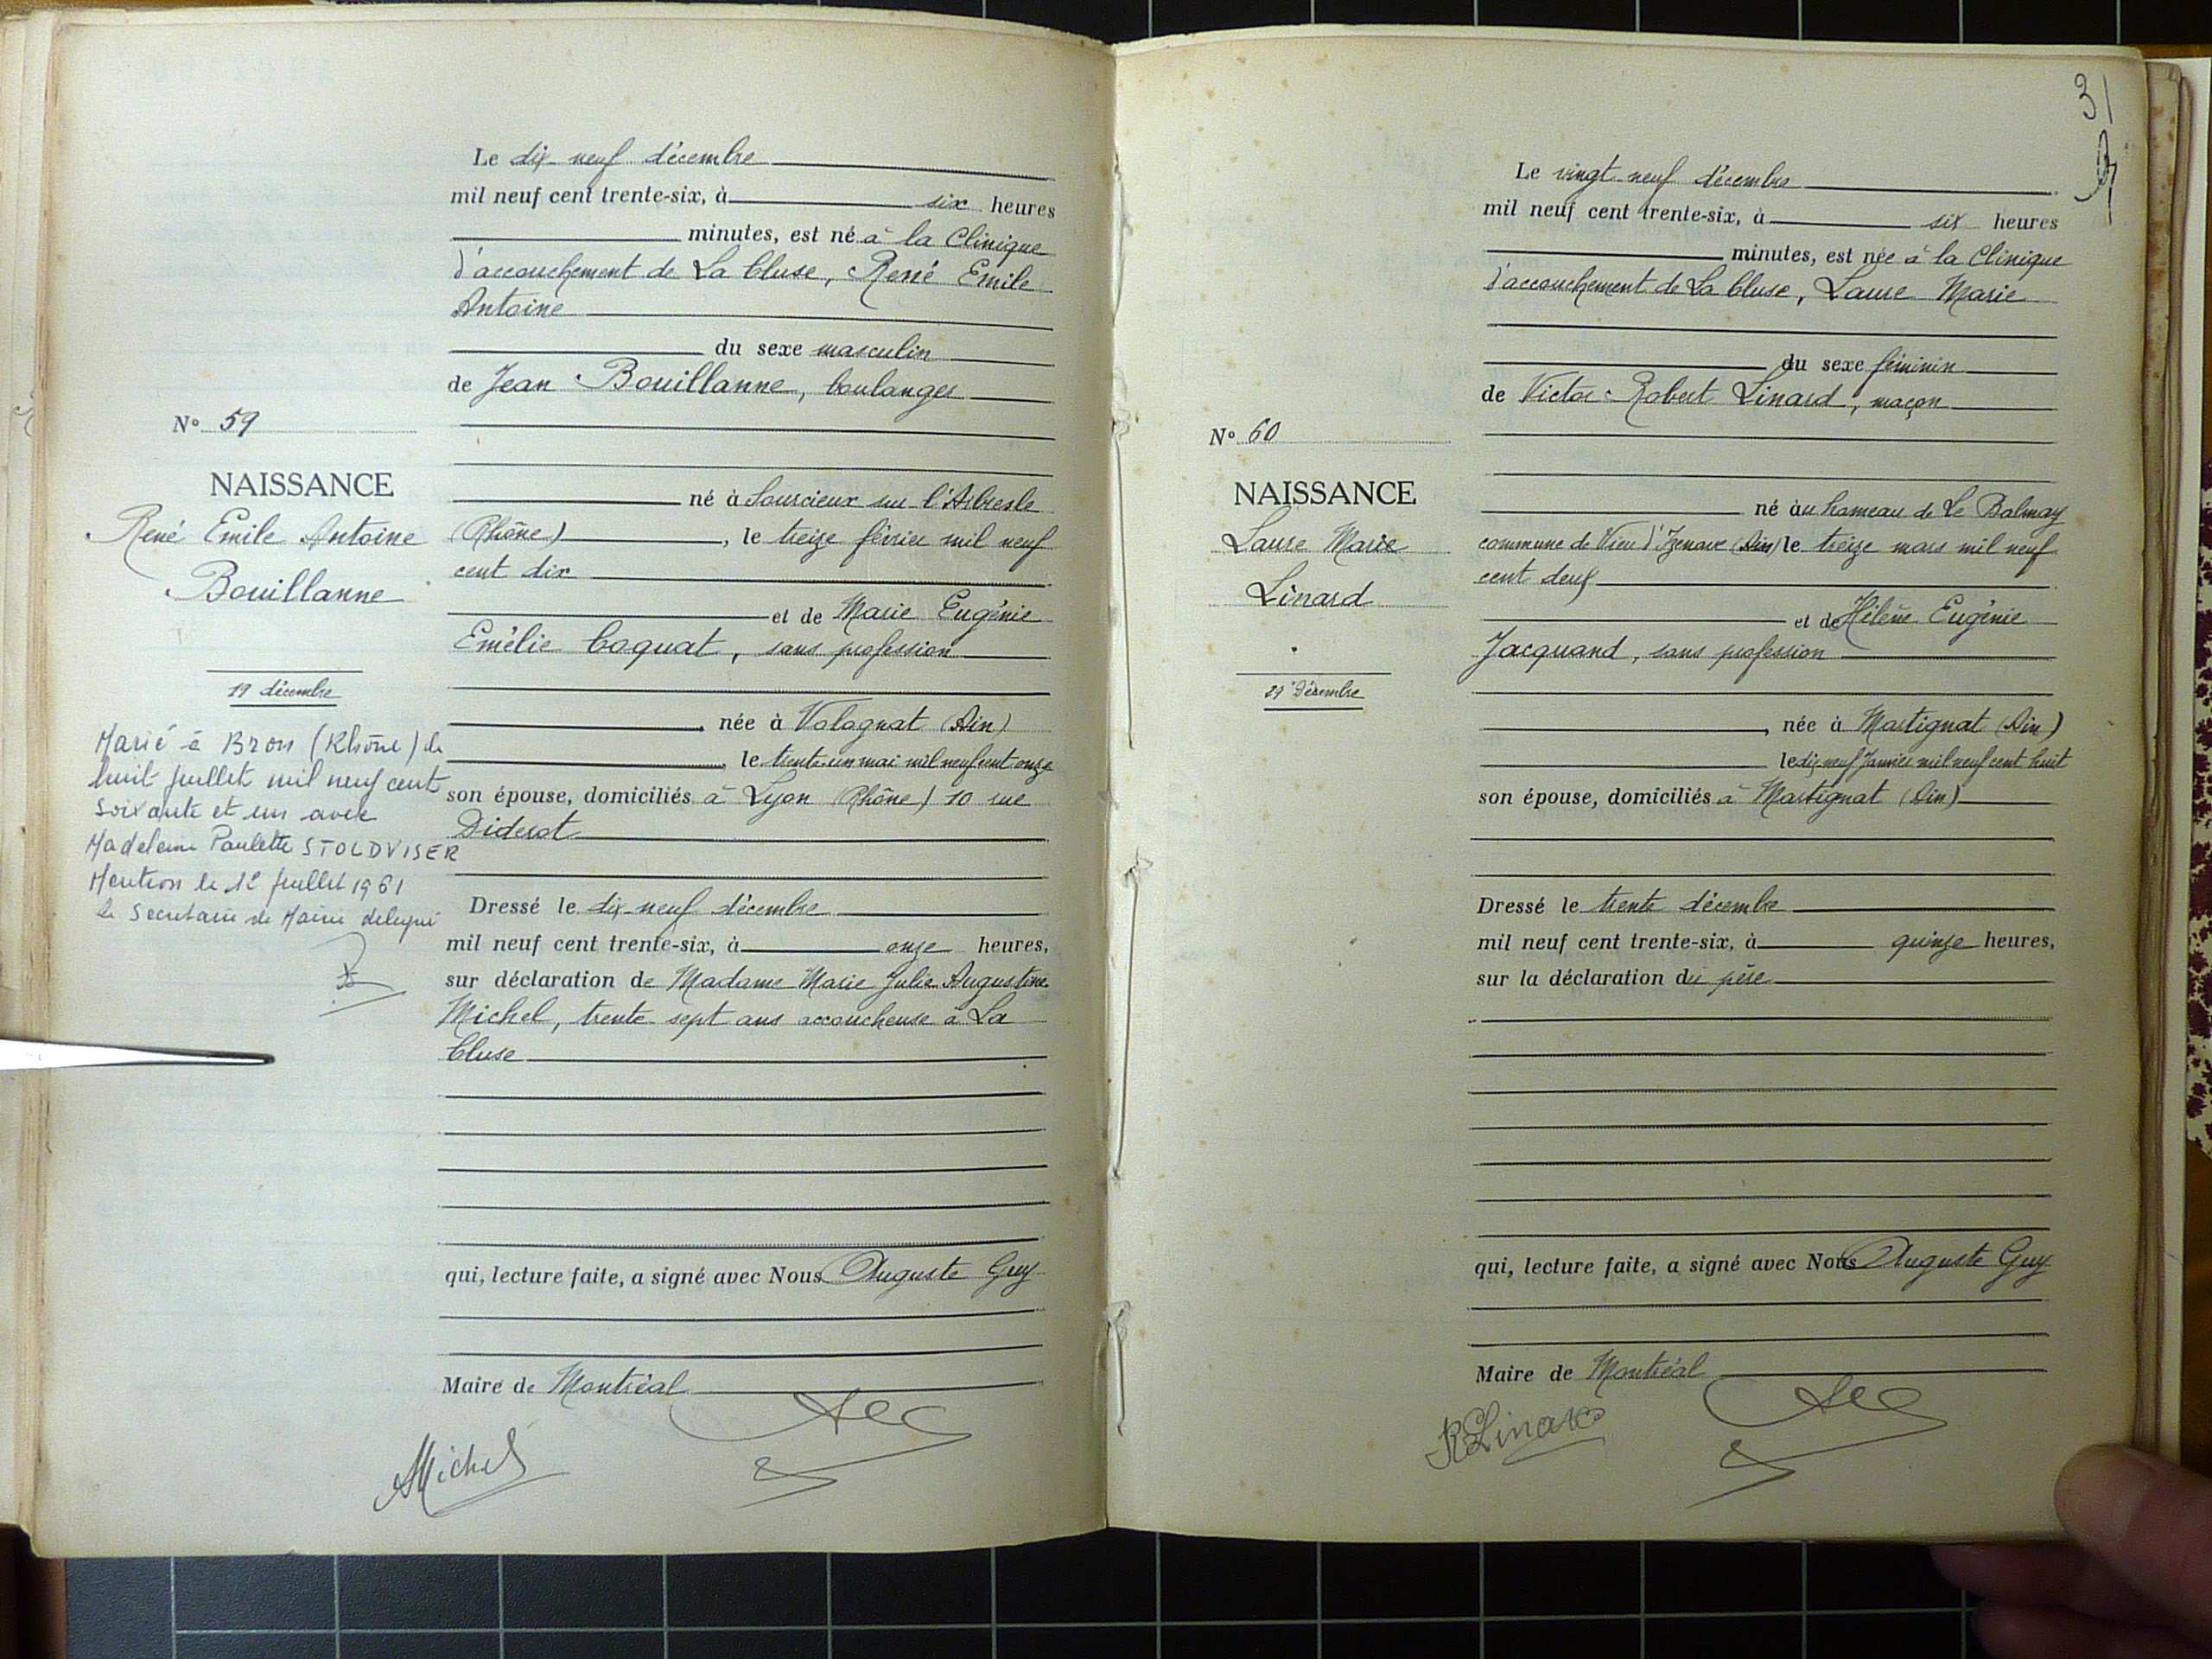 Le dix-neuf décembre
mil neuf cent trente-six, à six heures
minutes, est né à la Clinique
d'accouchement de La Cluse, René Emile
Antoine
du sexe masculin
de Jean Bouillanne, boulanger
N° 59
NAISSANCE
René Emile Antoine
Bouillanne
19 décembre
né à Sourcieux sur l'Arbresle
(Rhône), le treize février mil neuf
cent dix
et de Marie Eugénie
Emélie Coquat, sans profession
née à Volognat (Ain)
le trente-un mai mil neuf cent onze
son épouse, domiciliés à Lyon (Rhône) 10 rue
Diderot
Marié à Bron (Rhône) le
huit juillet mil neuf cent
soixante et un avec
Madeleine Paulette STOLDVISER
Mention le 12 juillet 1961
le Secrétaire de Mairie délégué
Dressé le dix-neuf décembre
mil neuf cent trente-six, à onze heures,
sur déclaration de Madame Marie Julie Augustine
Michel, trente sept ans accoucheuse à La
Cluse
qui, lecture faite, a signé avec Nous Auguste Guy
Maire de Montréal
Michel
31
Le vingt-neuf décembre
mil neuf cent trente-six, à six heures
minutes, est née à la Clinique
d'accouchement de La Cluse, Laure Marie
du sexe féminin
de Victor Robert Linard, maçon
N° 60
NAISSANCE
Laure Marie
Linard
29 Décembre
né au hameau de Le Balmay
commune de Vieu d'Izenave (Ain) le treize mars mil neuf
cent deux
et de Hélène Eugénie
Jacquand, sans profession
née à Martignat (Ain)
le dix neuf Janvier mil neuf cent huit
son épouse, domiciliés à Martignat (Ain)
Dressé le trente décembre
mil neuf cent trente-six, à quinze heures,
sur la déclaration du père
qui, lecture faite, a signé avec Nous Auguste Guy
Maire de Montréal
R Linard